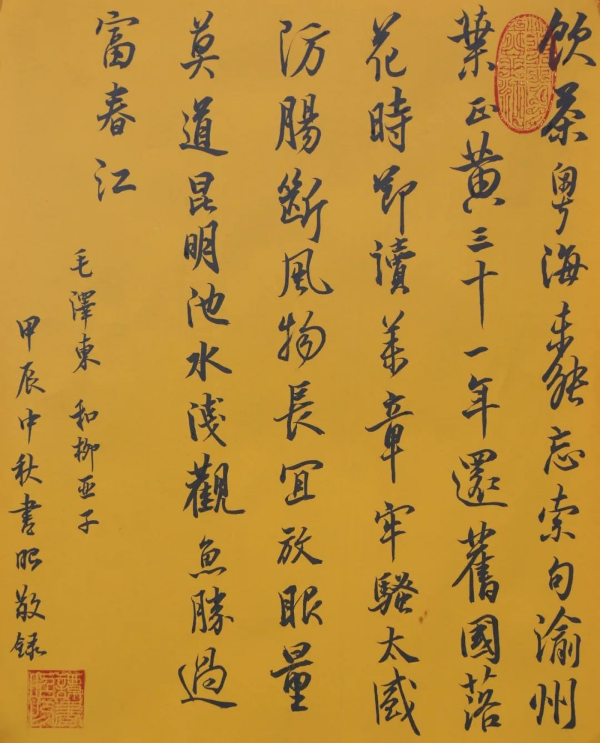 飲茶粵海未能忘索句渝州
葉正黃三十一年還舊國落
花時節讀華章牢騷太盛
防腸斷風物長宜放眼量
莫道昆明池水淺觀魚勝過
富春江
毛澤東 和柳亞子
甲辰中秋書昭敬録